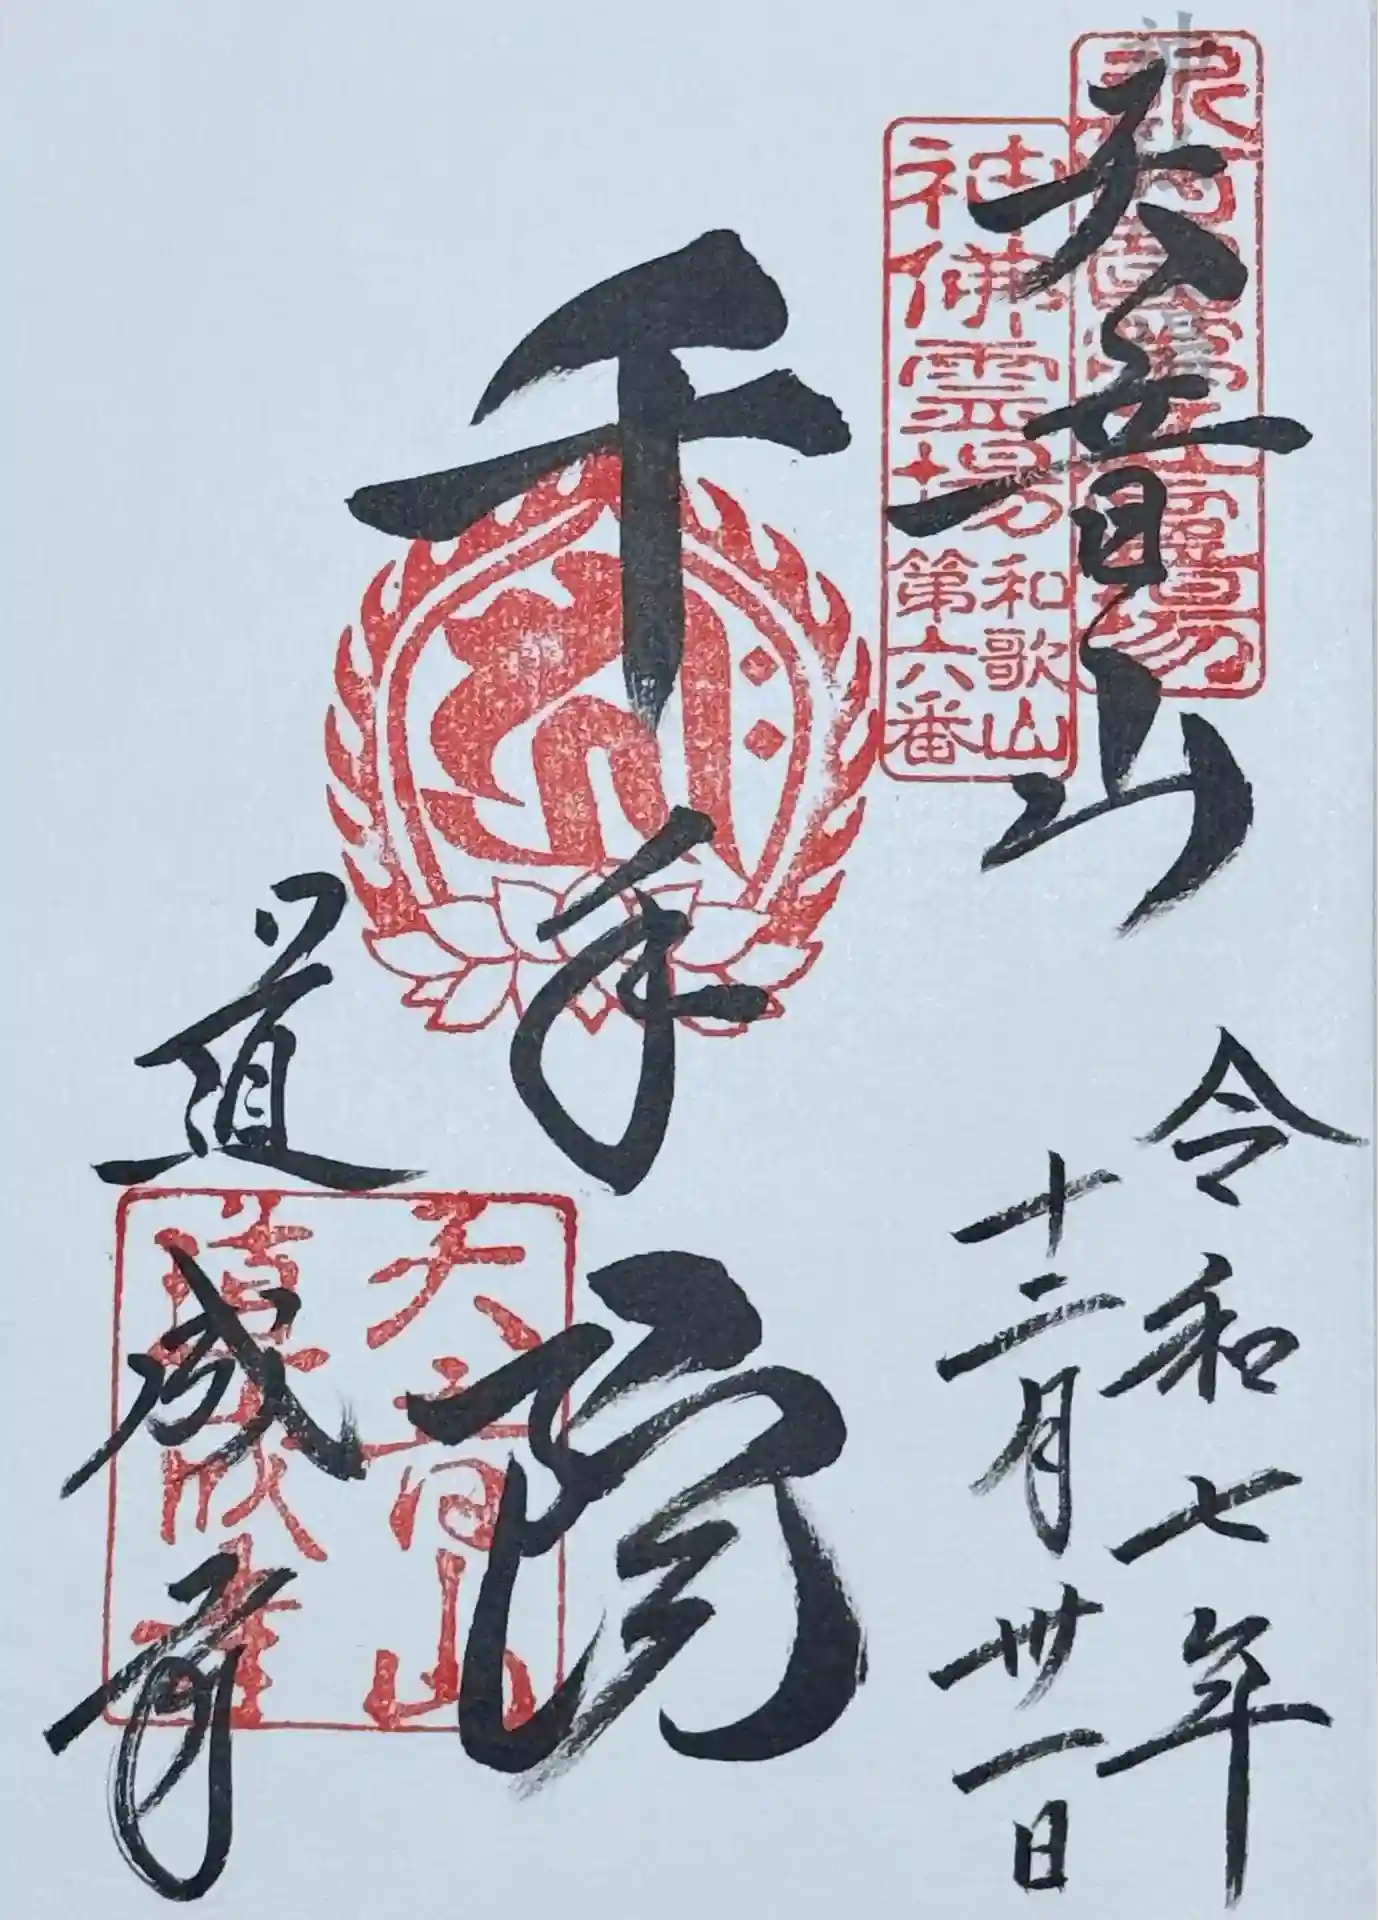 天音山
令和七年
十二月卅一日
神佛霊場
和歌山
第六番
千手院
天音山
道成寺